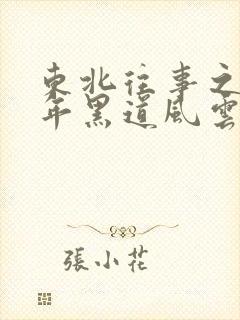 東北往事之
年黑道風雲
張小花